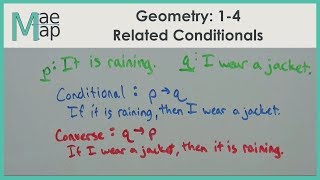 Mae Map
Geometry: 1-4
Related Conditionals
p: It is raining. q: I wear a jacket.
Conditional: p→q
If it is raining, then I wear a jacket.
Converse: q→p
If I wear a jacket, then it is raining.